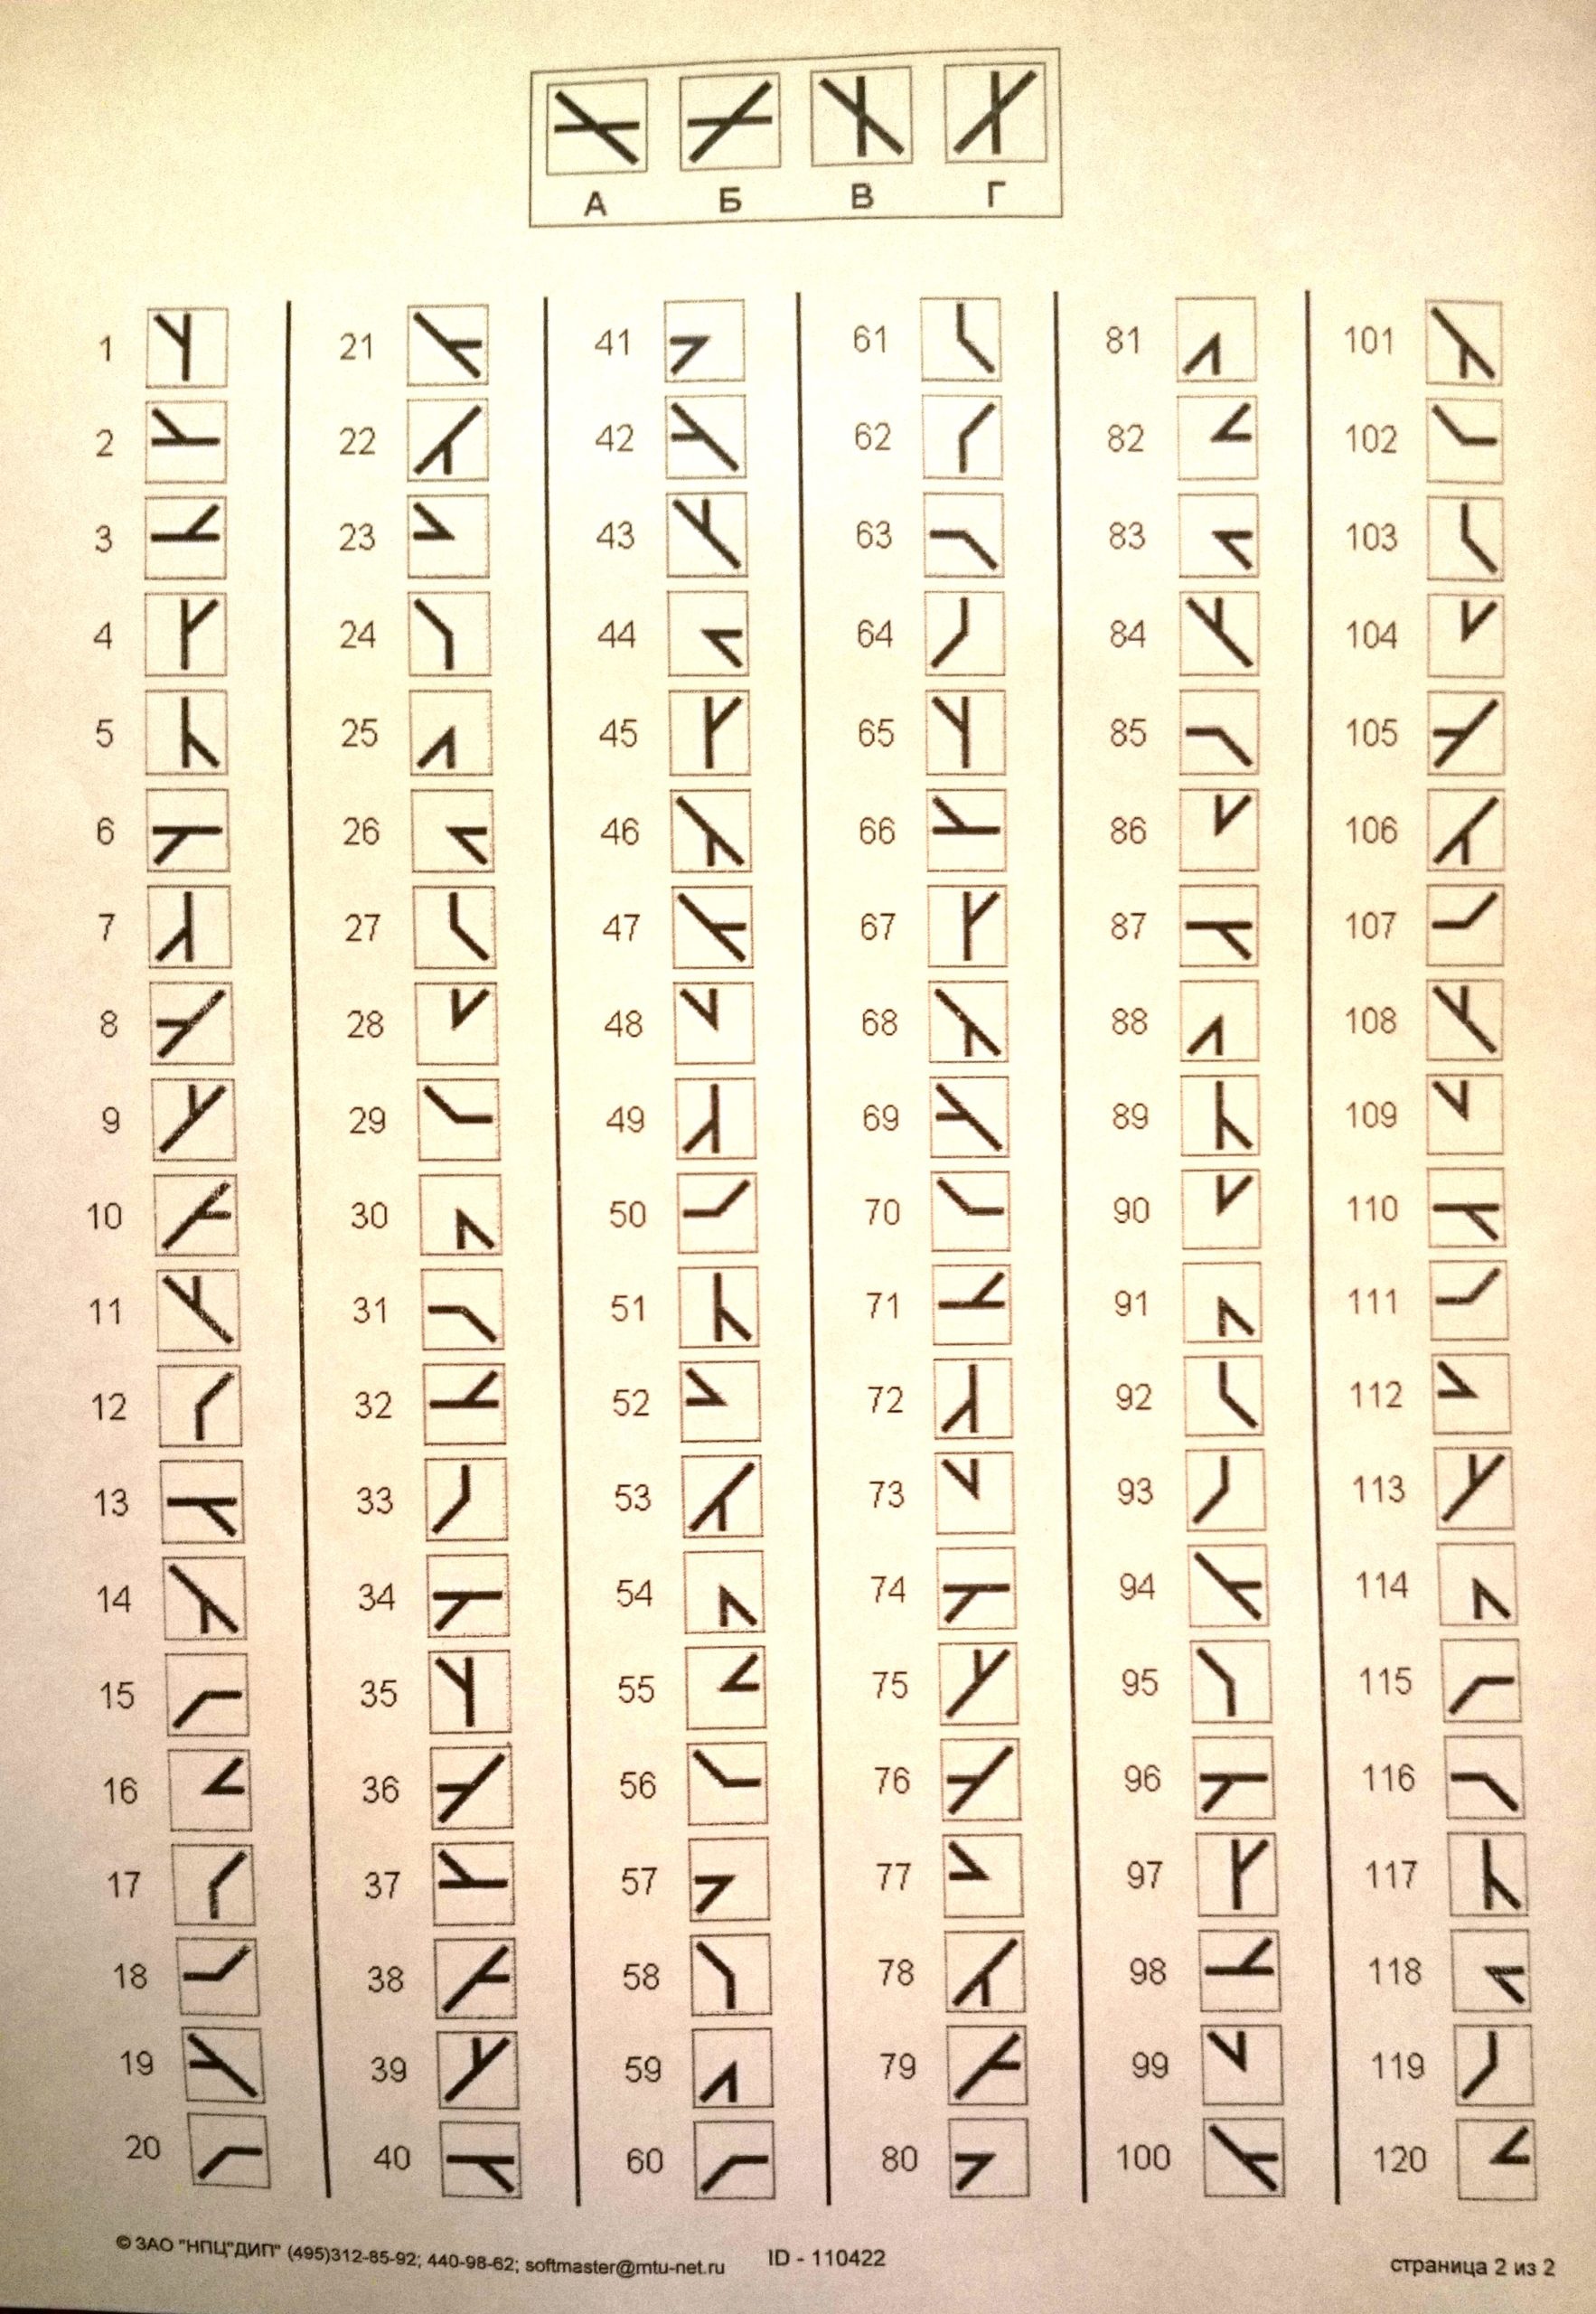 А Б В Г
1 21 41 61 81 101
2 22 42 62 82 102
3 23 43 63 83 103
4 24 44 64 84 104
5 25 45 65 85 105
6 26 46 66 86 106
7 27 47 67 87 107
8 28 48 68 88 108
9 29 49 69 89 109
10 30 50 70 90 110
11 31 51 71 91 111
12 32 52 72 92 112
13 33 53 73 93 113
14 34 54 74 94 114
15 35 55 75 95 115
16 36 56 76 96 116
17 37 57 77 97 117
18 38 58 78 98 118
19 39 59 79 99 119
20 40 60 80 100 120
© ЗАО "НПЦ"ДИП" (495)312-85-92; 440-98-62; softmaster@mtu-net.ru ID - 110422 страница 2 из 2